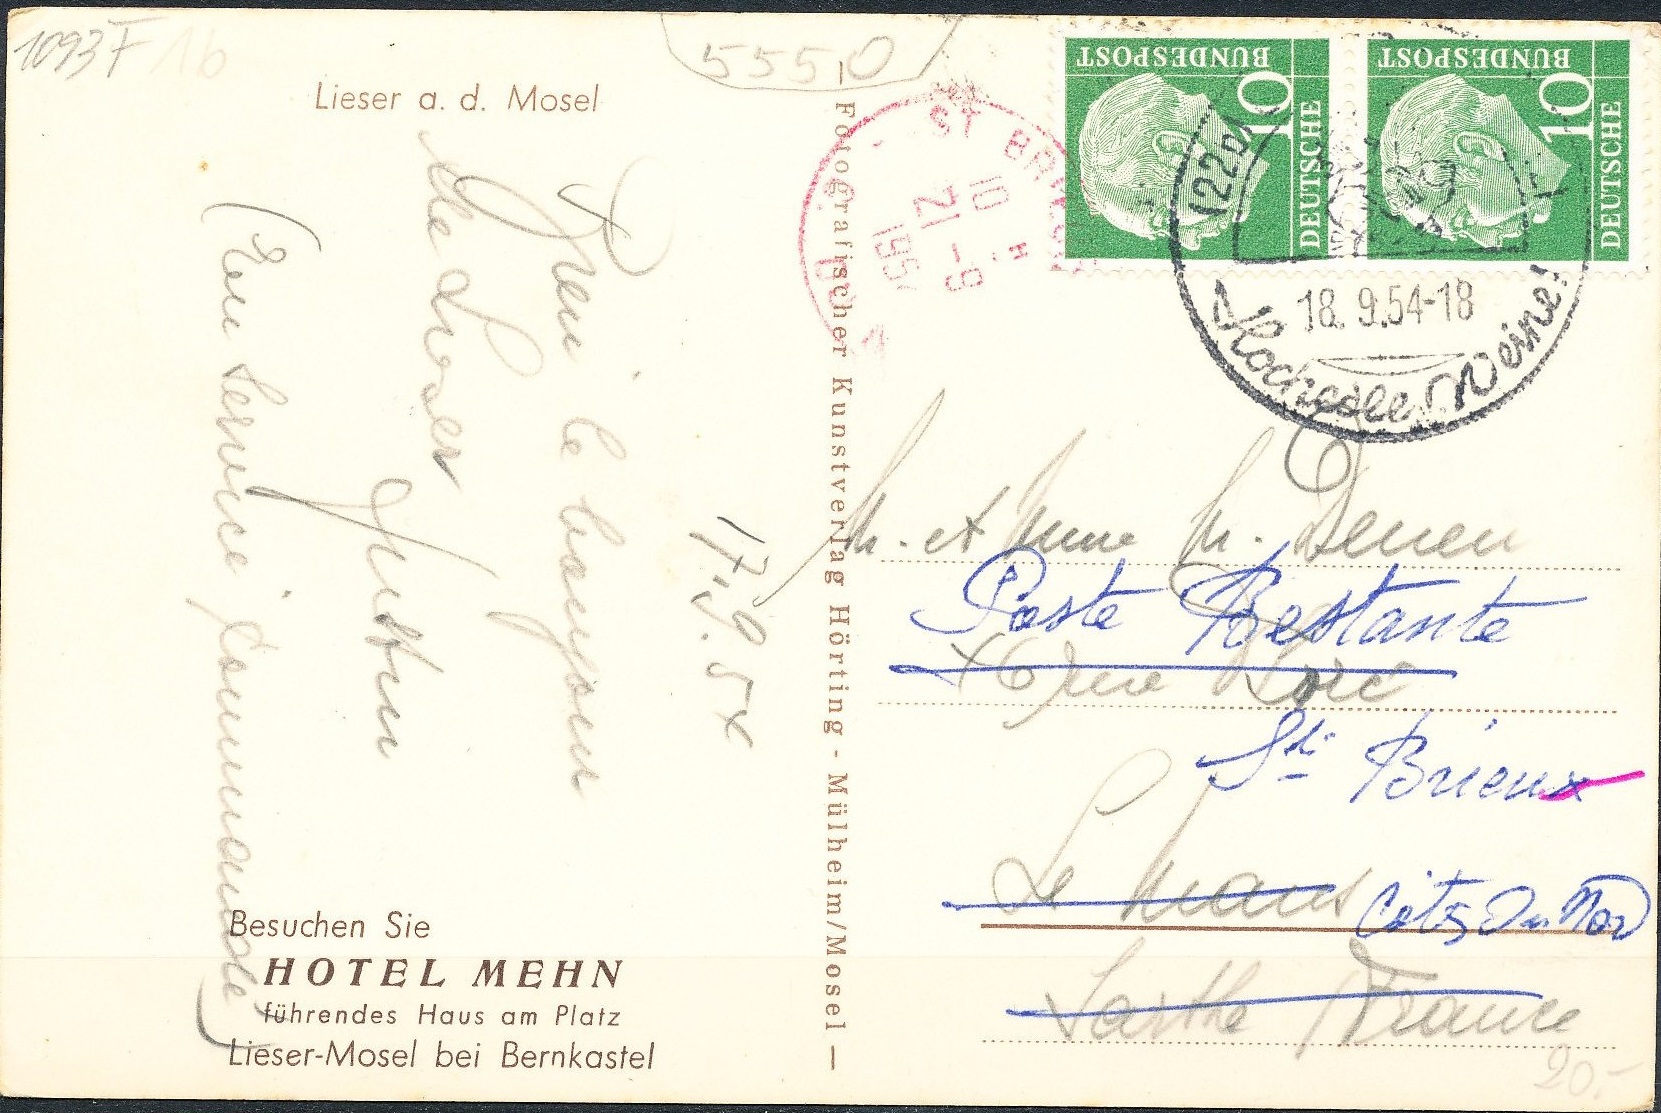 1093F 1b
5550
Lieser a. d. Mosel
17.9.54
Bien le bonjour
de Lieser
(En service commandé)
Besuchen Sie
HOTEL MEHN
führendes Haus am Platz
Lieser-Mosel bei Bernkastel
Fotografischer Kunstverlag Hörting - Mülheim/Mosel
DEUTSCHE BUNDESPOST 10
DEUTSCHE BUNDESPOST 10
(22b)
18.9.54-18
Weine!
ST BRIEUC
10 H
21 -9
195
M. et Mme M.
Poste Restante
rue
St Brieux
Le Mans
Côtes Du Nord
Sarthe France
20.-